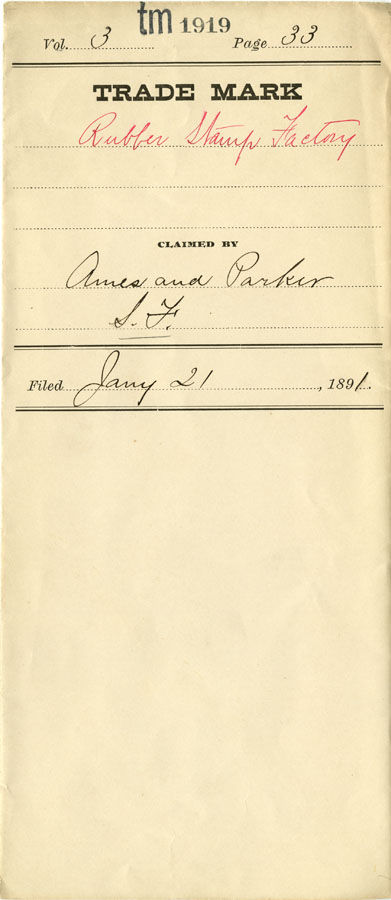 tm 1919
Vol. 3 Page 33
TRADE MARK
Rubber Stamp Factory
CLAIMED BY
Ames and Parker
S. F.
Filed Jany 21, 1891.